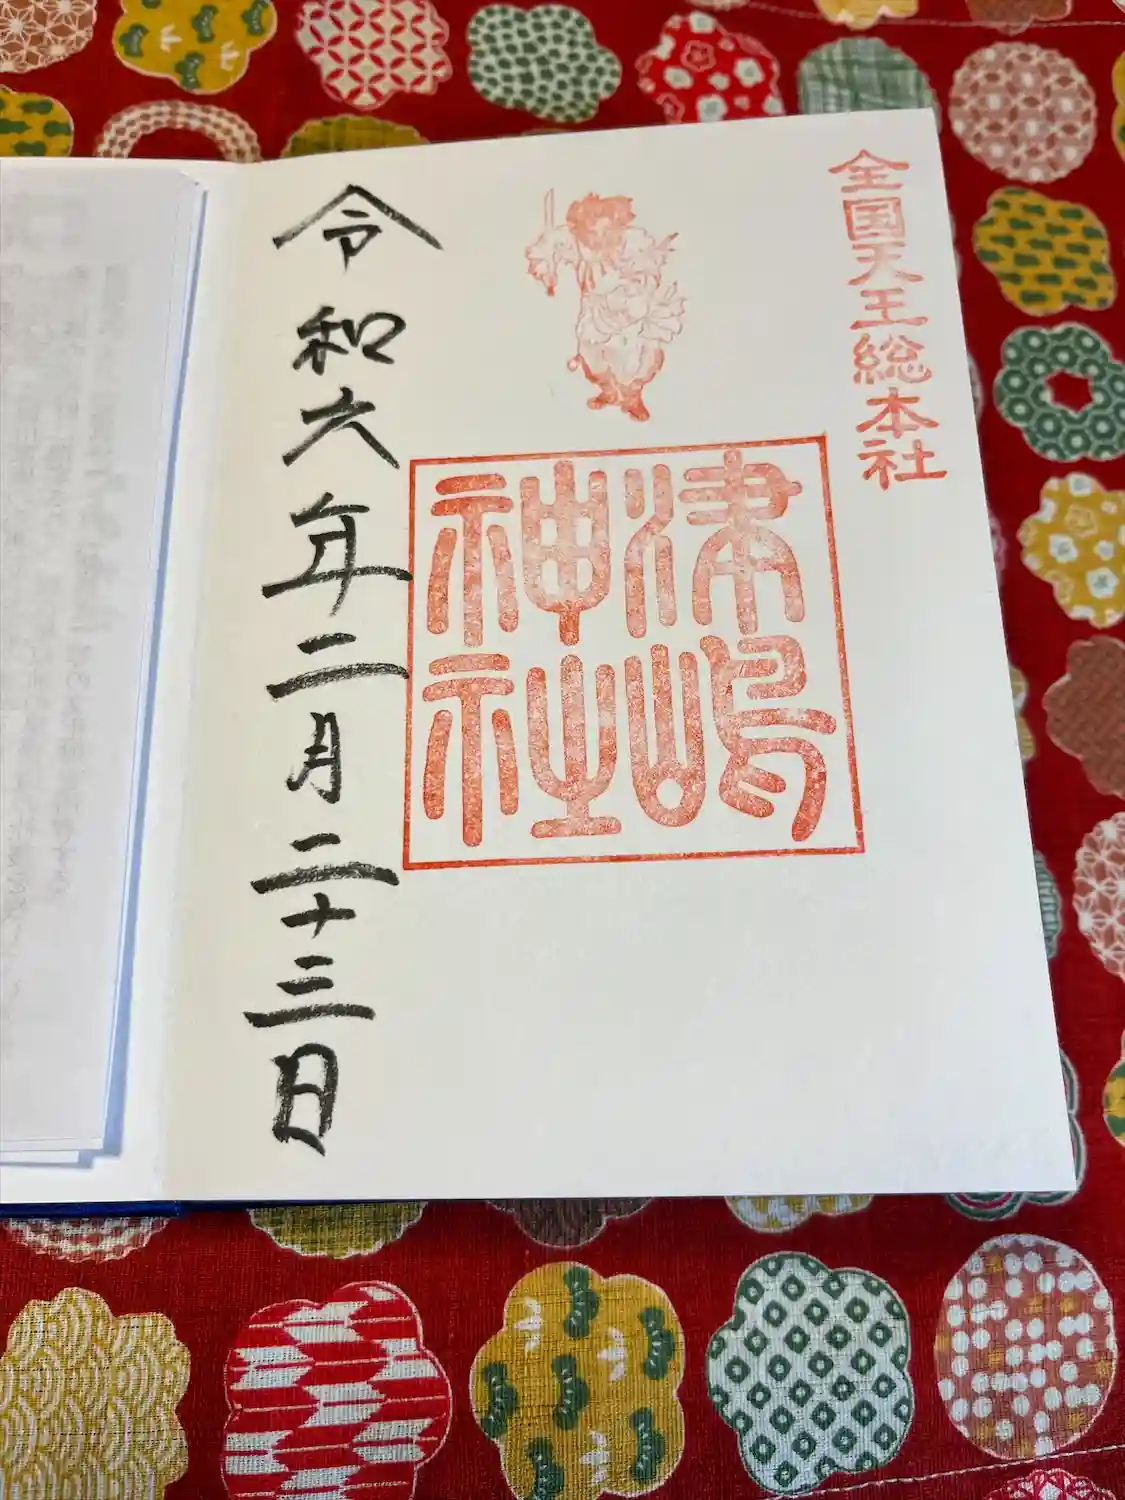 全国天王総本社
津嶋
神社
令和六年二月二十三日